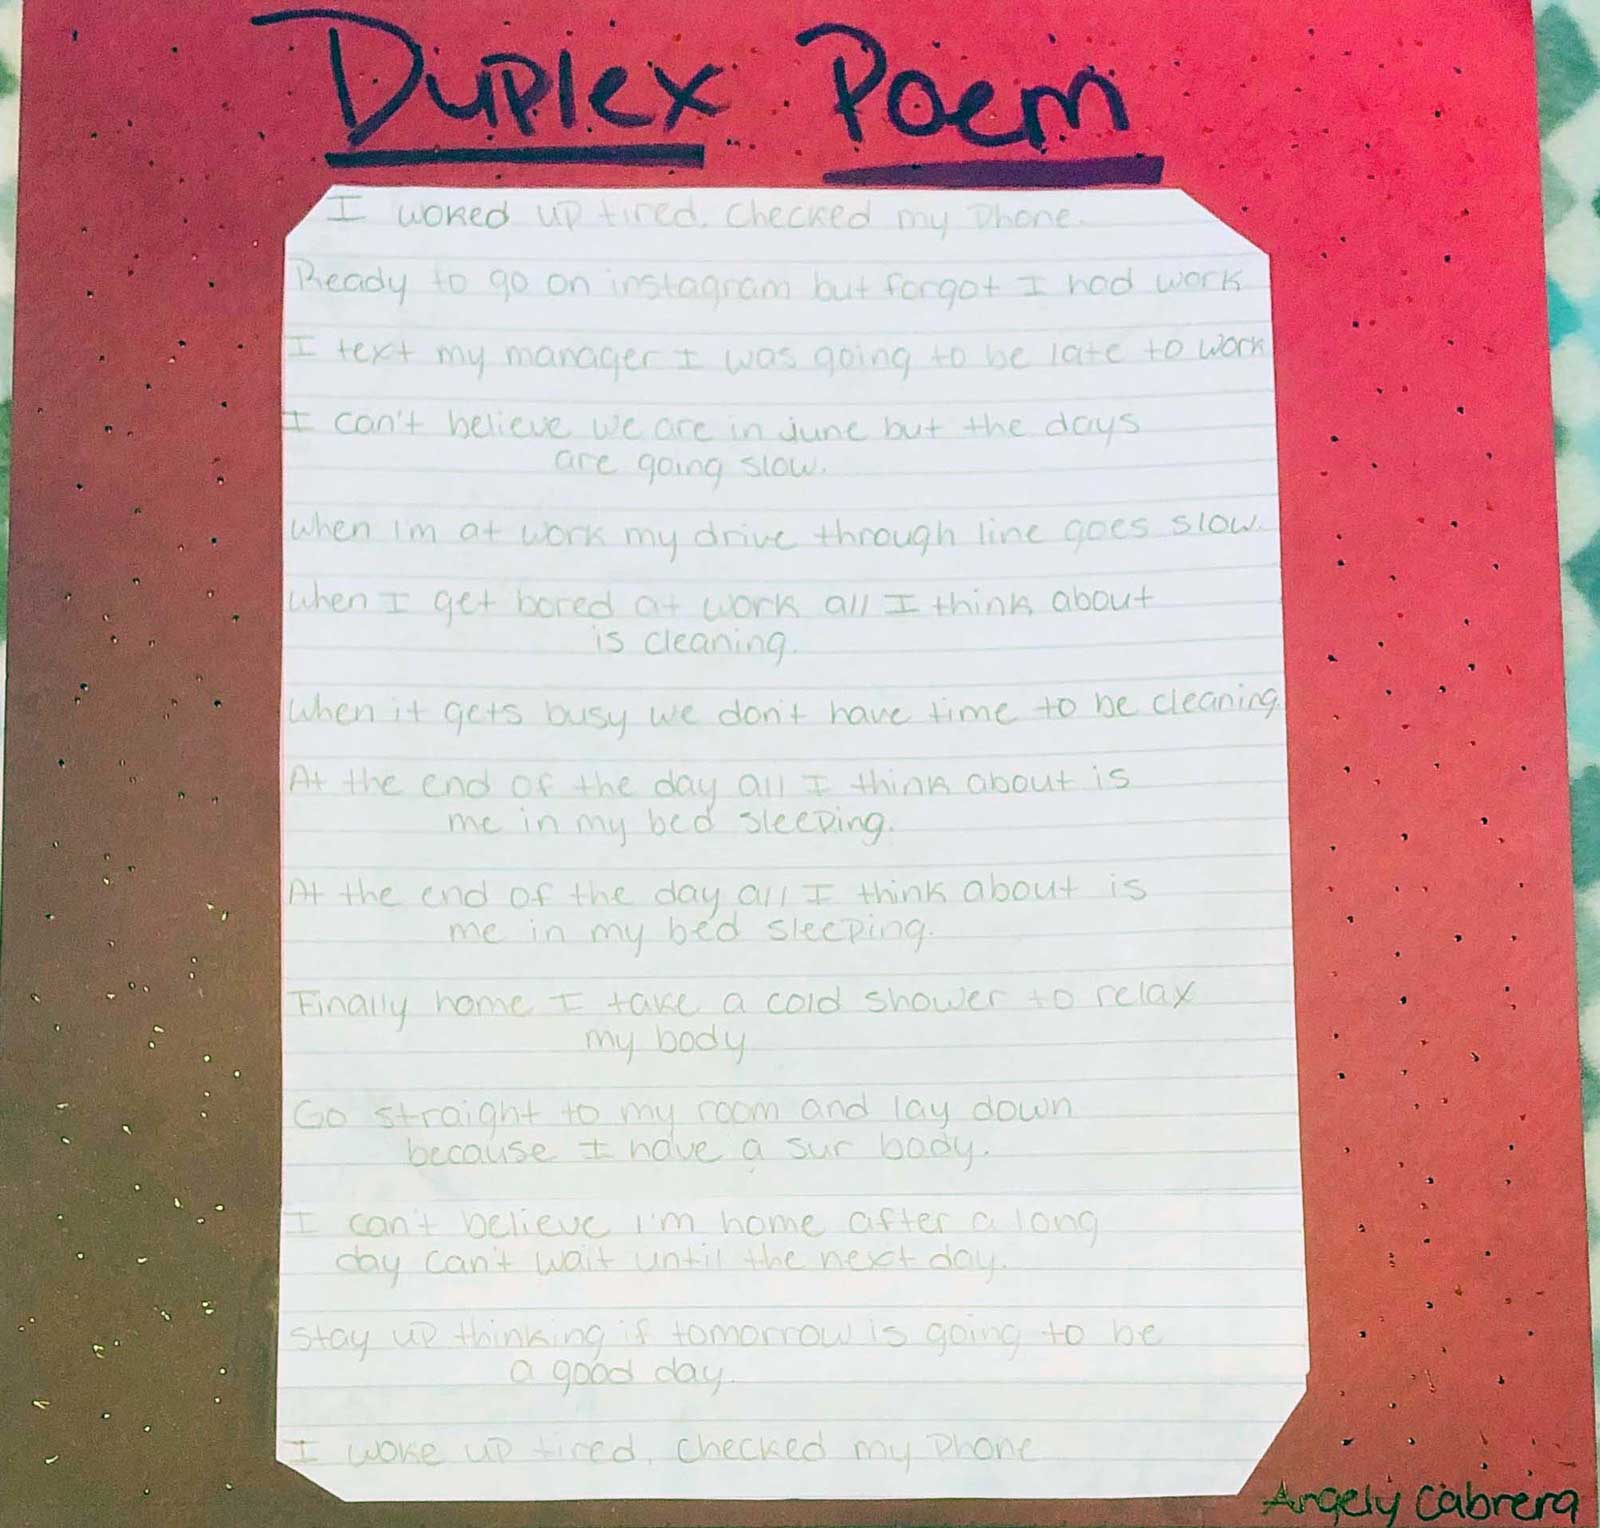 Duplex Poem
I woked up tired. Checked my phone.
Ready to go on instagram but forgot I had work
I text my manager I was going to be late to work
I can't believe we are in june but the days
are going slow.
When I'm at work my drive through line goes slow.
When I get bored at work all I think about
is cleaning.
When it gets busy we don't have time to be cleaning.
At the end of the day all I think about is
me in my bed sleeping.
At the end of the day all I think about is
me in my bed sleeping.
Finally home I take a cold shower to relax
my body
Go straight to my room and lay down
because I have a sur body.
I can't believe I'm home after a long
day can't wait until the next day.
Stay up thinking if tomorrow is going to be
a good day.
I woke up tired. Checked my phone
Angely Cabrera